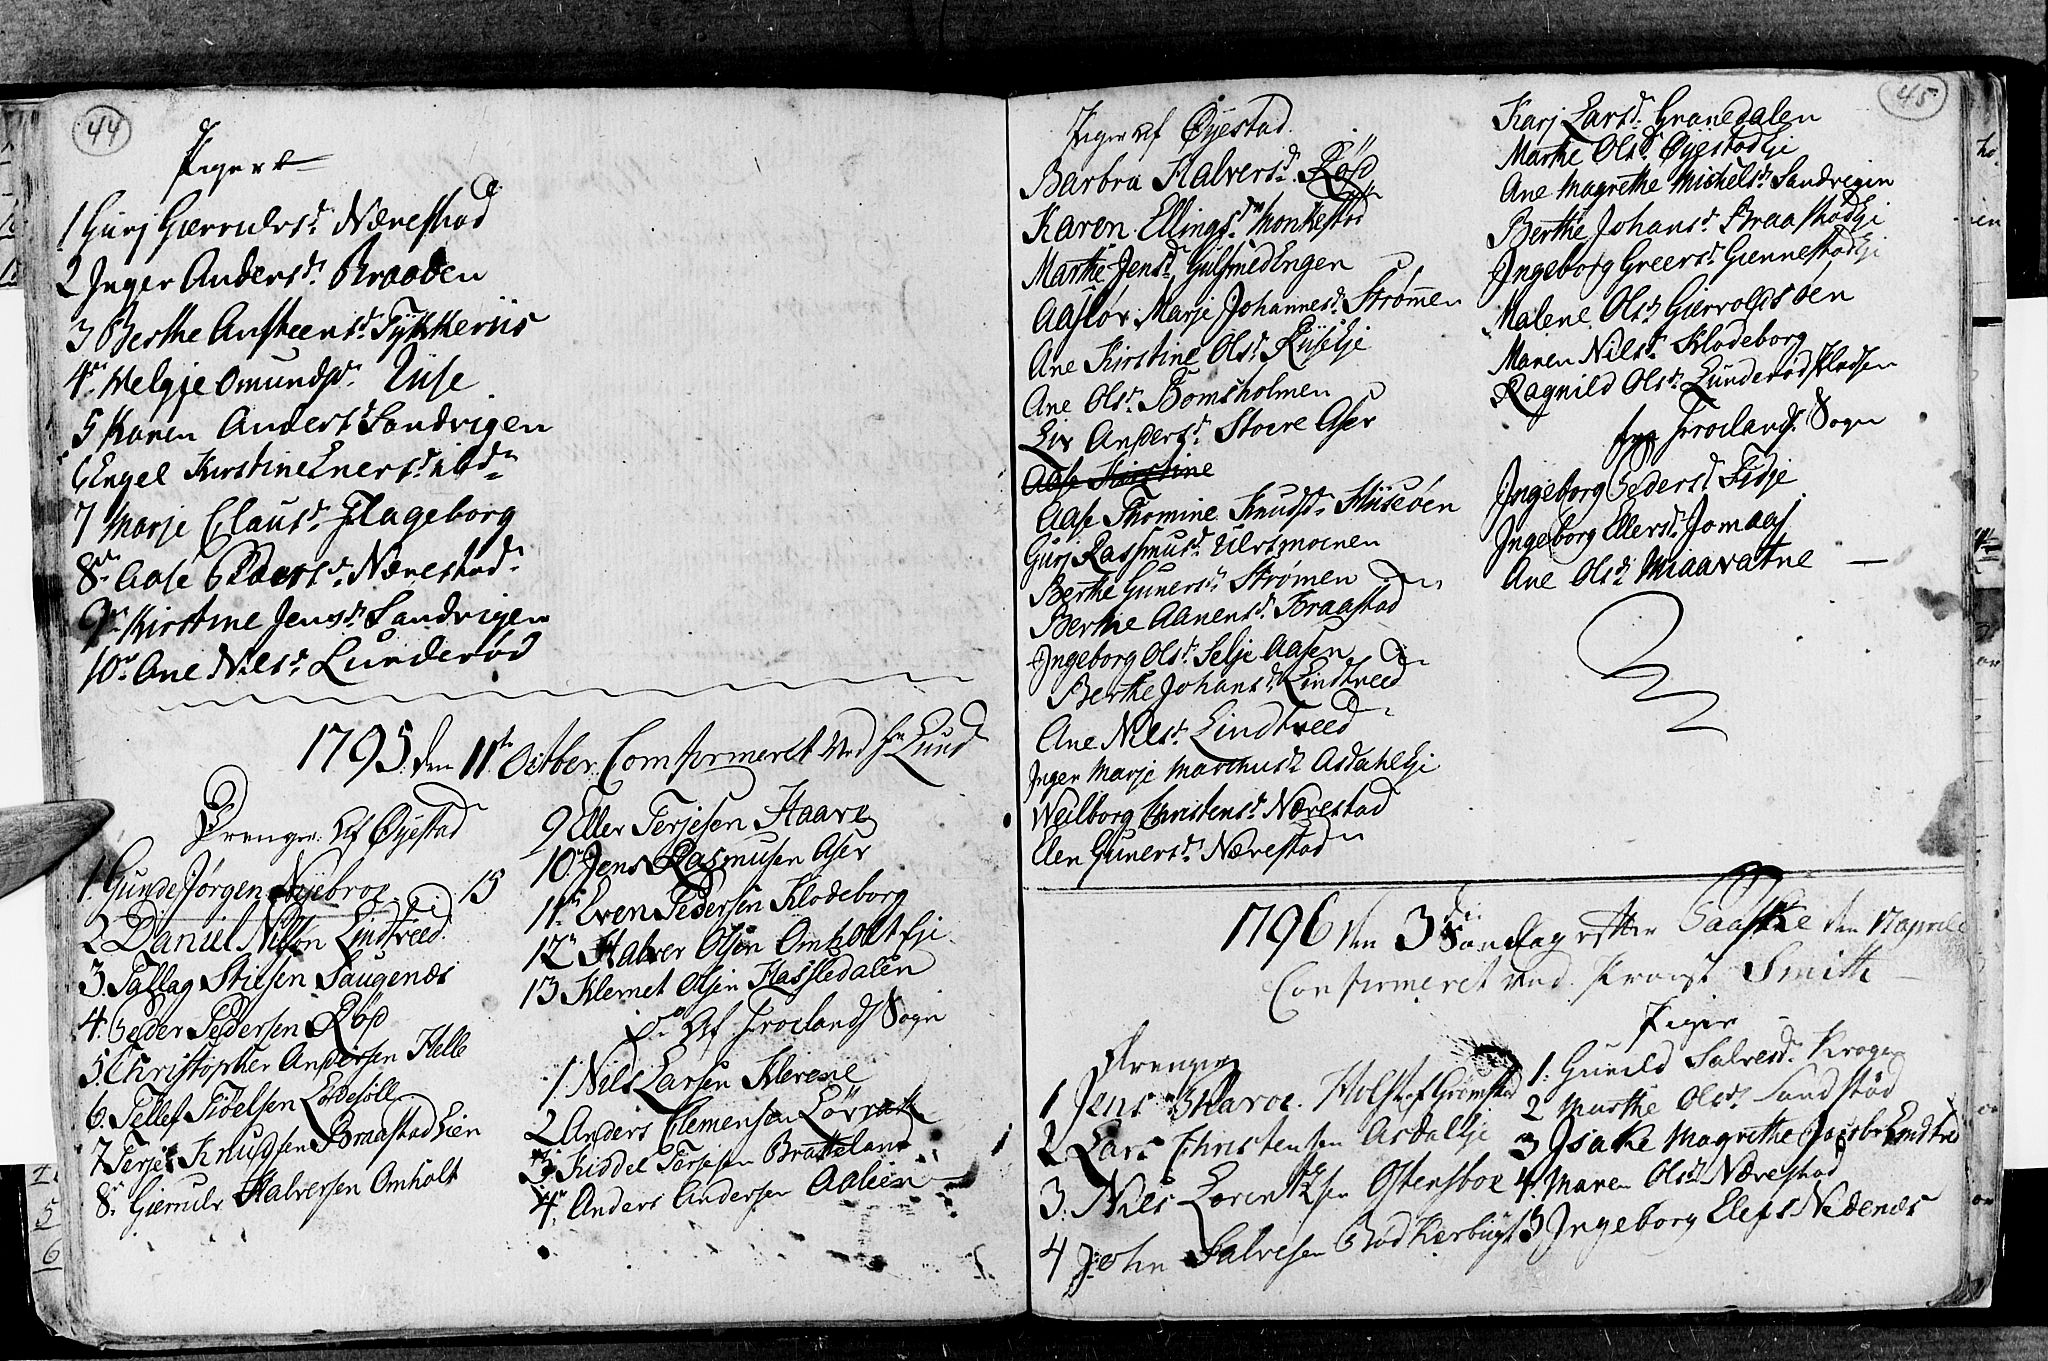 44
Piger
1 Gurj Gierrulvsd. Nærestad
2 Inger Andersd. Braaden
3 Berthe Ansteensd. Tykkeriis
4. Helgje Omundsd.
5 Karen Andersd Sandvigen
6 Engel Kirstine Enersd. ibdn
7 Marje Clausd. Flageborg
8. Aase Pedersd. Nærestad
9. Kirstine Jensd. Sandvigen
10. Ane Nilsd. Lunderød
1795 den 11te Octber Comfirmeret ved Hr Lund
Drenge Af Øyestad
1. Gunde Jørgen Nyebroe 15
2 Daniel Nilsøn Lindtveed
3. Tallag Stiesen Saugenæs
4. Peder Pedersen Røsd
5. Christopher Andersen Helle
6. Tellef Tidelsen Lødesøll
7 Terje Knudsen Braastad Eien
8. Gierrulv Halversen Omholt
9 Eller Terjesen Haave
10. Jens Rasmusen Aser
11. Even Pedersen Klodeborg
12 Halver Olsen Omholt Eje
13 Klemet Olsen Hassledalen
Do Af Froelands Sogn
1. Nils Larsen Klevene
2 Anders Clemensen Løvrak
3. Kiddel Terjesen Bratteland
4. Anders Andersen Aalien
45
Piger Af Øyestad
Barbra Halversd. Røsd
Karen Ellingsd. Monkestad
Marthe Jensd. Gulsmedengen
Aasløv Marje Johannesd. Strømen
Ane Kirstine Olsd. Rüseje
Ane Olsd. Bomsholmen
Liv Andersd. Stoere Aser
Aase Kirstine
Aase Thomine Knudsd. Huseøen
Gurj Rassmusd. Ulersmoenen
Berthe Gunersd. Strømen
Berthe Aanensd. Braastad
Ingeborg Olsd. Selje Aasen
Berthe Johansd. Lindtveed
Ane Nilsd. Lindtveed
Inger Marje Marchusd. Asdahl Eje
Weilborg Christensd. Nærestad
Elen Gunersd. Nærestad
Karj Larsd. Granedalen
Marthe Olsd Øyestad Eje
Ane Magrethe Michelsd. Sandvigen
Berthe Johansd. Braastad Eje
Ingeborg Greersd. Giennestad Eje
Malene Olsd. Gierrolds øen
Maren Nilsd. Klodeborg
Ragnild Olsd. Lunderød Pladsen
fra Froelands Sogn
Ingeborg Pedersd. Fidje
Ingeborg Ellersd. Jomaas
Ane Olsd. Miaavatne
1796 den 3die Søndag etter Paaske den 17 aprill
Confirmeret ved Provst Smith
Drenge
1 Jens Skaroe Holst af Grømstad
2 Lars Christensen Asdall Eje
3. Nils Lorentzen Ostensboe
4 John Salvesen Bodkerbugt
Piger
1. Gunild Salvesd. Kroge
2 Marthe Olsd. Sandstød
3 Isake Magrethe Jacobs Lindtve
4. Maren Olsd. Nærestad
5 Ingeborg Elefs Nedenæs